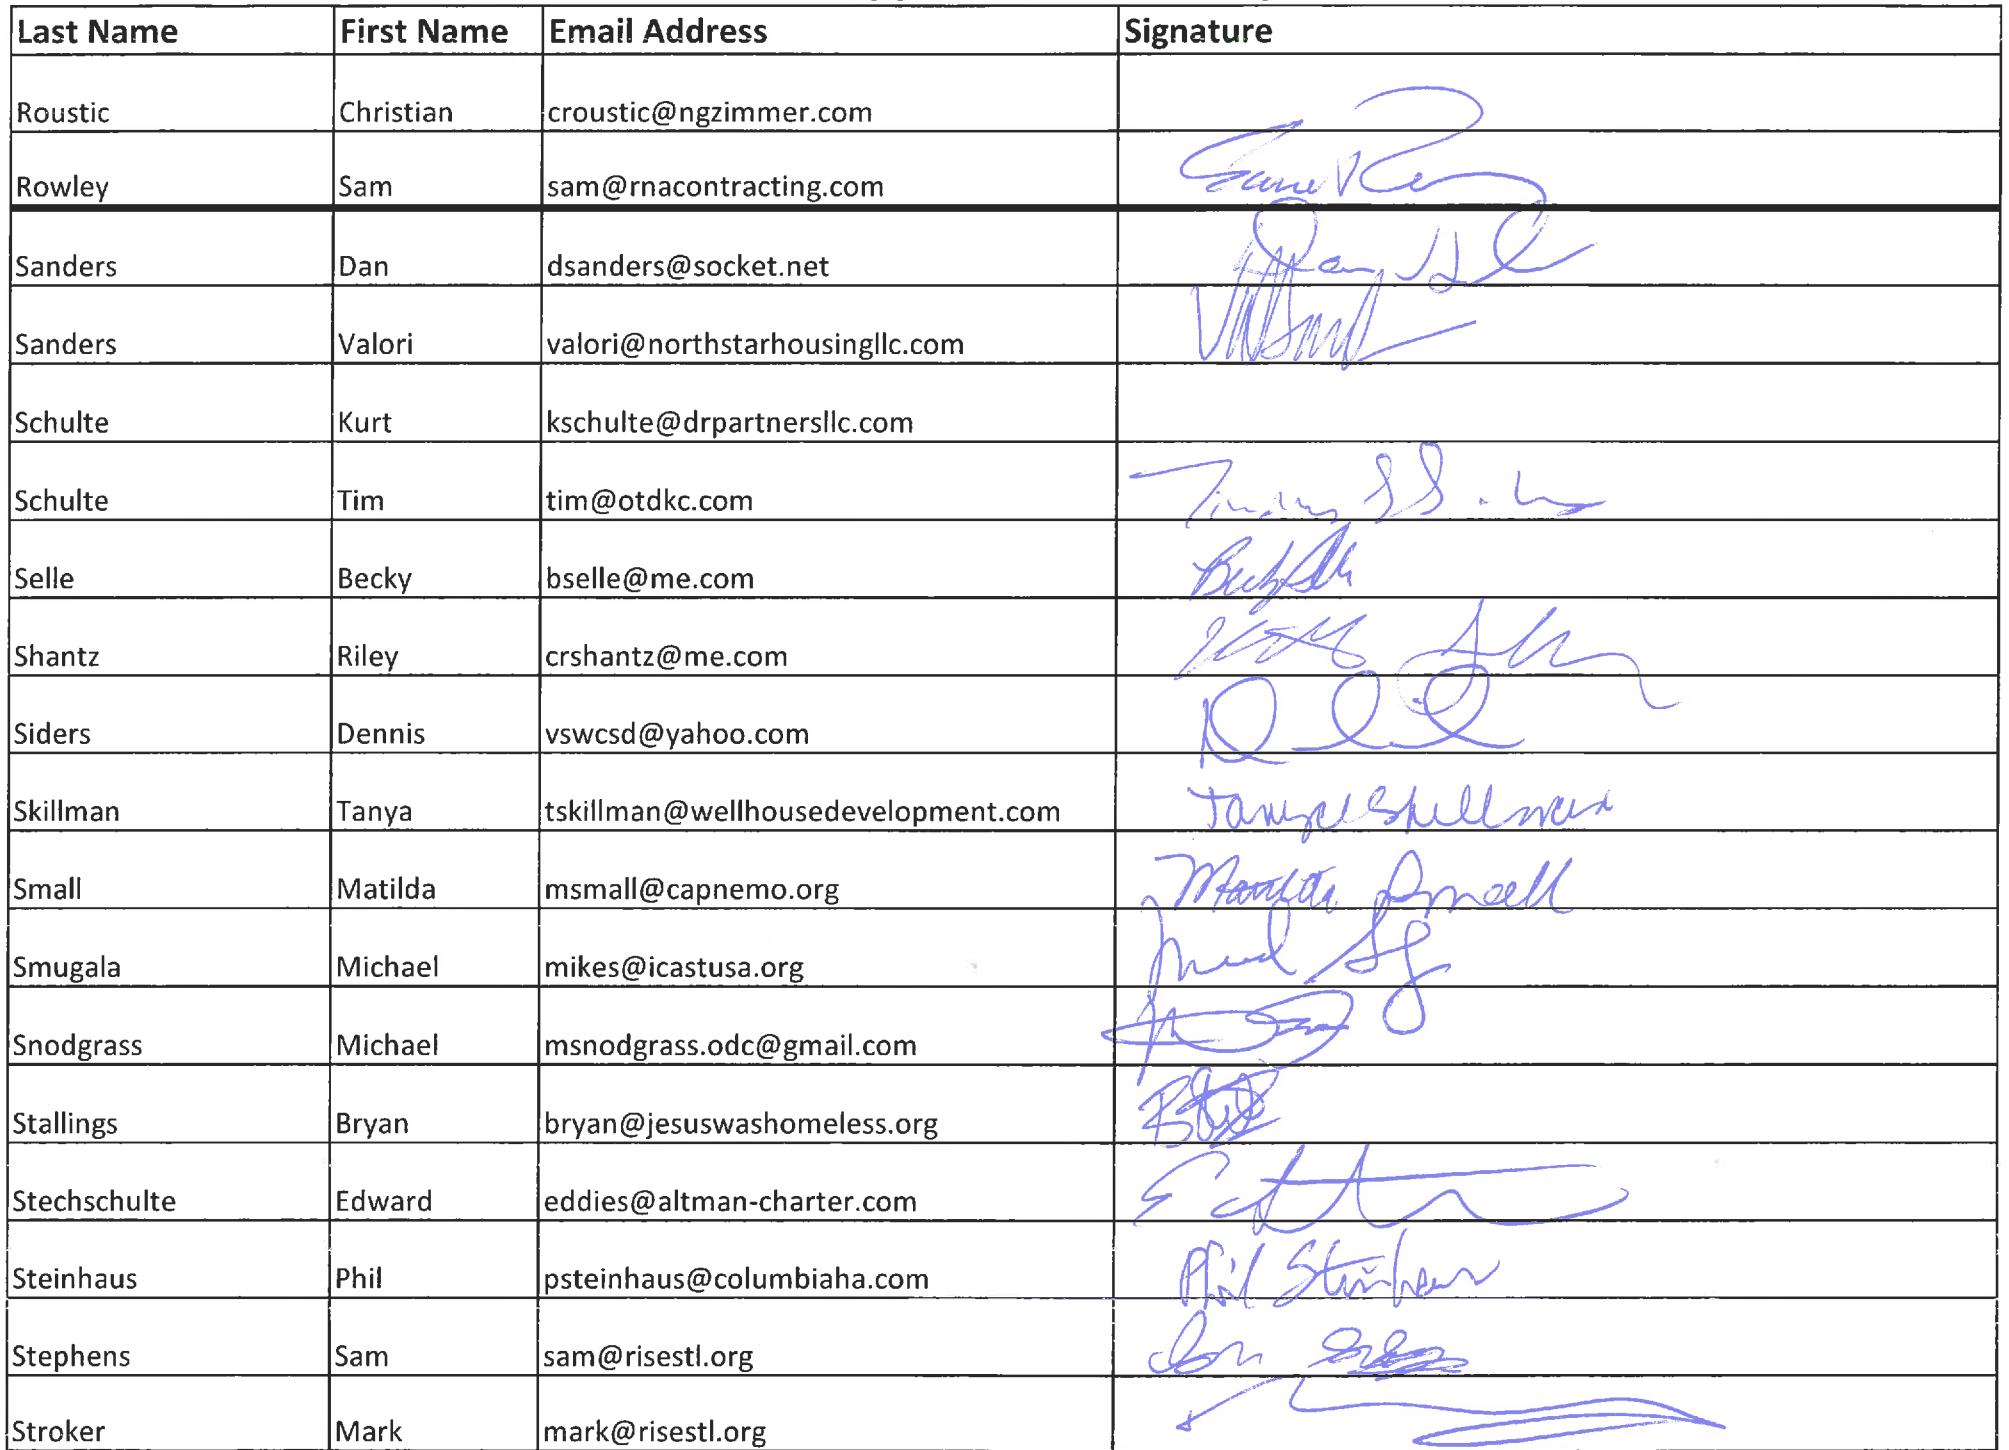 Last Name First Name Email Address Signature
Roustic Christian croustic@ngzimmer.com
Rowley Sam sam@rnacontracting.com
Sanders Dan dsanders@socket.net
Sanders Valori valori@northstarhousingllc.com
Schulte Kurt kschulte@drpartnersllc.com
Schulte Tim tim@otdkc.com
Selle Becky bselle@me.com
Shantz Riley crshantz@me.com
Siders Dennis vswcsd@yahoo.com
Skillman Tanya tskillman@wellhousedevelopment.com Tanya Skillman
Small Matilda msmall@capnemo.org Matilda Small
Smugala Michael mikes@icastusa.org
Snodgrass Michael msnodgrass.odc@gmail.com
Stallings Bryan bryan@jesuswashomeless.org
Stechschulte Edward eddies@altman-charter.com
Steinhaus Phil psteinhaus@columbiaha.com Phil Steinhaus
Stephens Sam sam@risestl.org
Stroker Mark mark@risestl.org